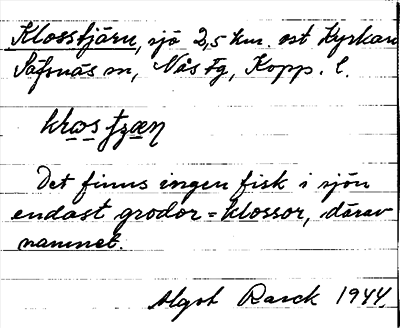 Klosstjärn, sjö 2,5 km. ost kyrkan
Säfsnäs sn, Nås Fg, Kopp. l.
Det finns ingen fisk i sjön
endast grodor = klossor, därav
namnet.
Algot Barck 1944